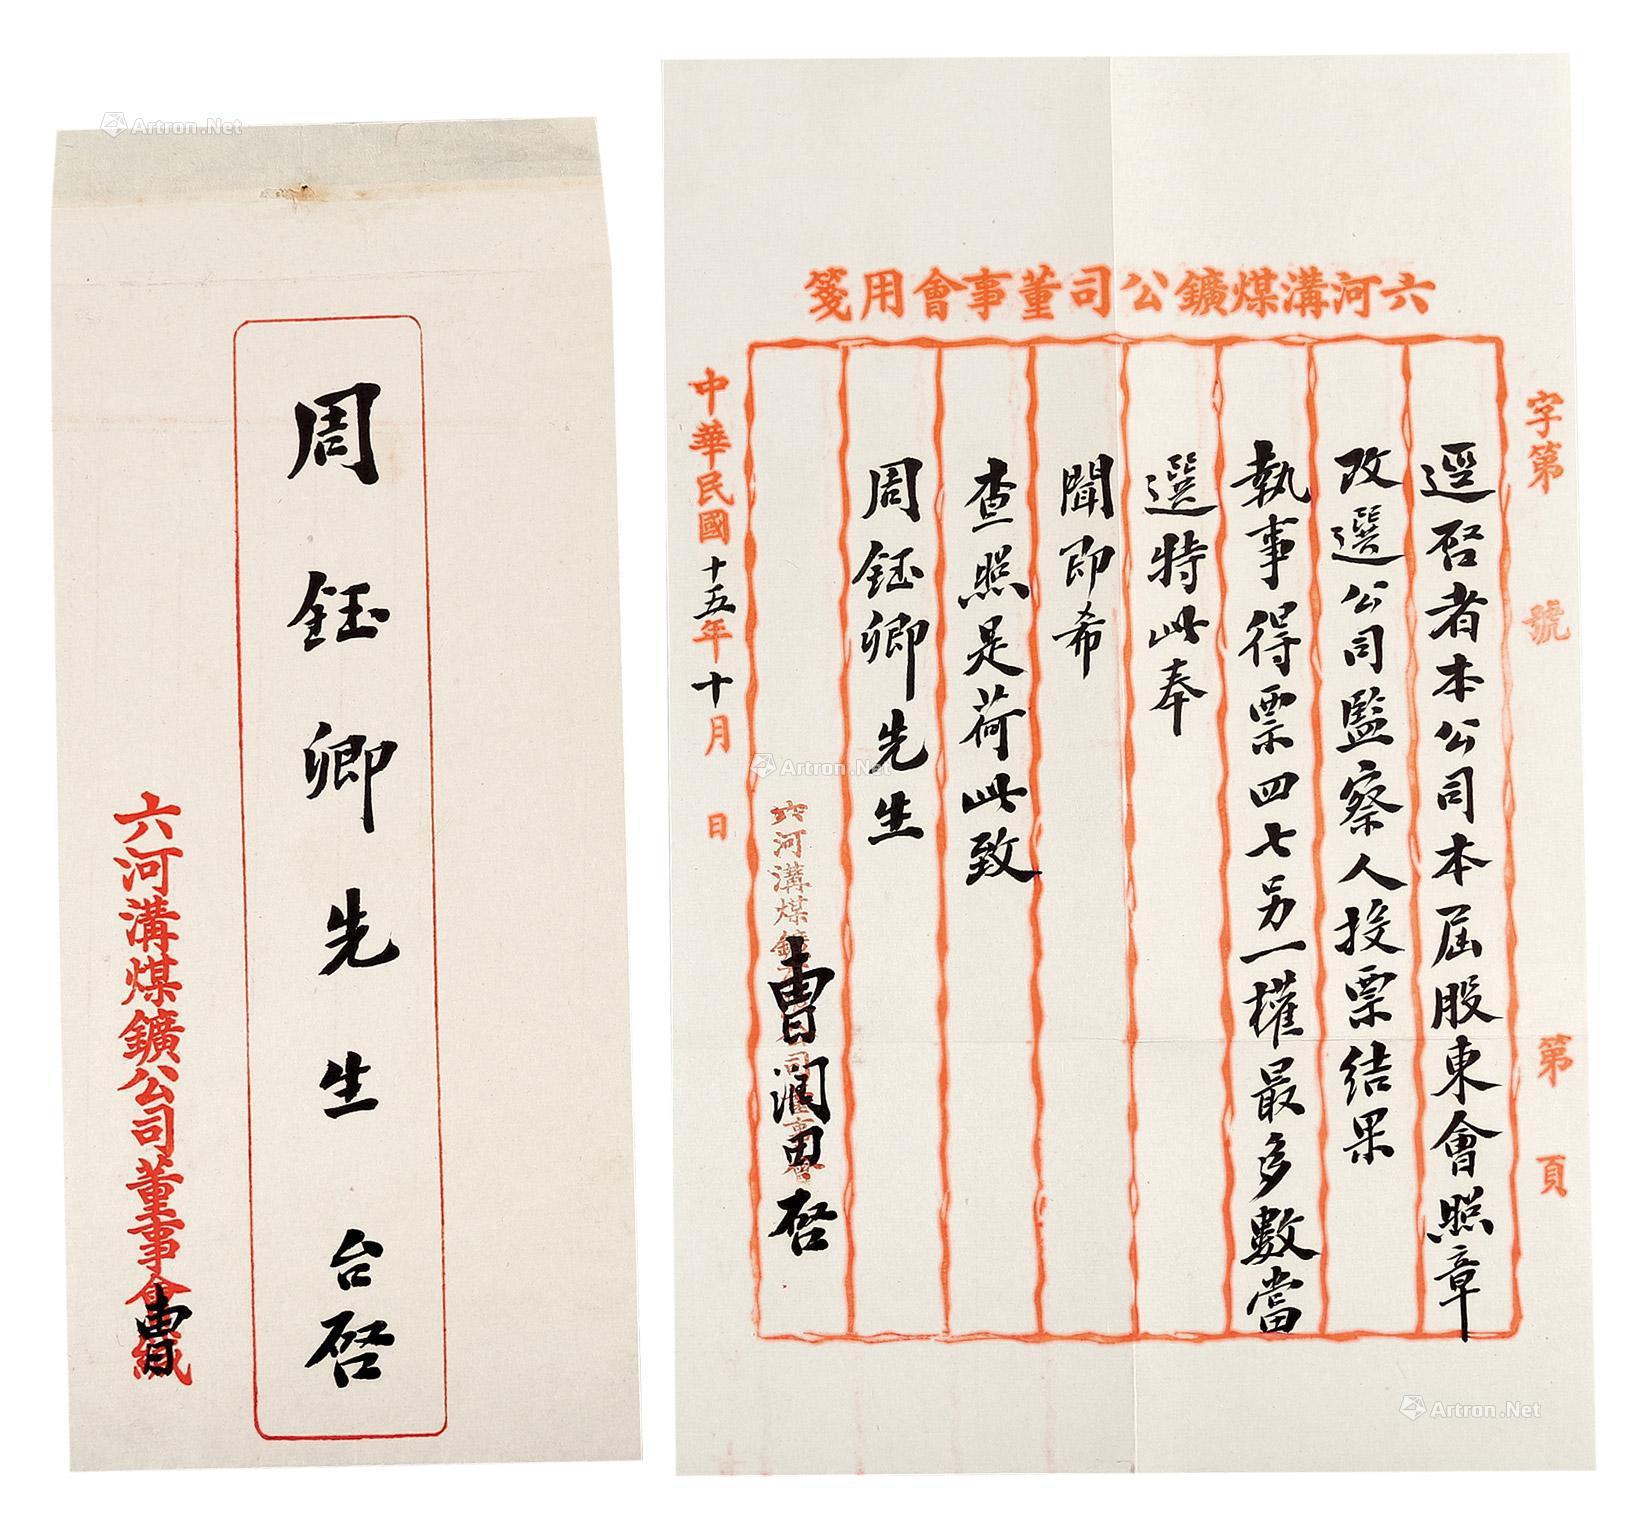 周鈺卿先生台啓
六河溝煤鑛公司董事會緘
曹
六河溝煤鑛公司董事會用箋
字第 號 第 頁
逕啓者本公司本屆股東會照章
改選公司監察人投票結果
執事得票四七另一權最多數當
選特此奉
聞即希
查照是荷此致
周鈺卿先生
六河溝煤鑛公司董事會
曹潤田啓
中華民國十五年十月 日
Artron.Net
Artron.Net
Artron.Net